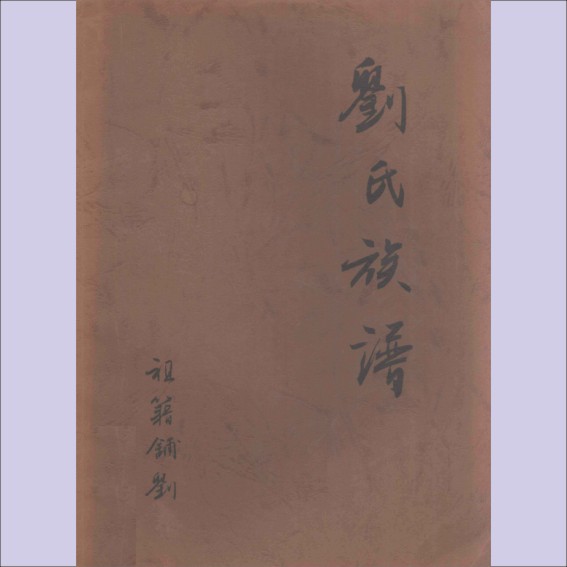 劉氏族譜
祖籍鋪劉